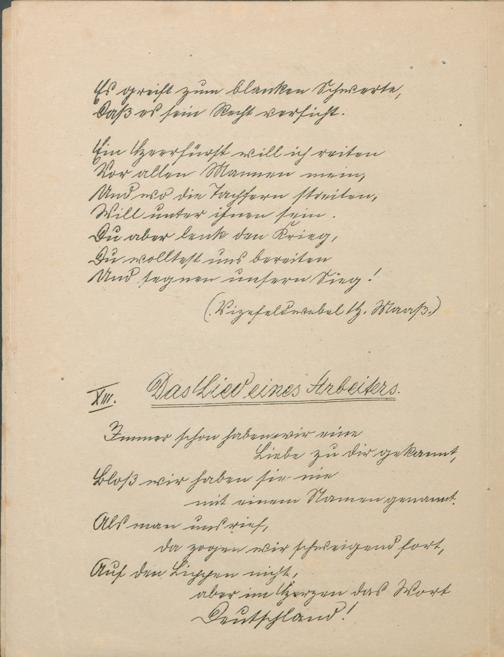 Es greift zum blanken Schwerte,
Daß es sein Recht verficht.
Ein Heerfürst will ich reiten
Vor allen Mannen mein,
Und wo die Tapfern streiten,
Will unter ihnen sein.
Du aber lenk den Krieg,
Du wolltest uns bereiten
Und segnen unsern Sieg!
(Vizefeldwebel H. Maaß.)
XIII. Das Lied eines Arbeiters.
Immer schon haben wir eine
Liebe zu dir gekannt,
Bloß wir haben sie nie
mit einem Namen genannt.
Als man uns rief,
da zogen wir schweigend fort,
Auf den Lippen nicht,
aber im Herzen das Wort
Deutschland!